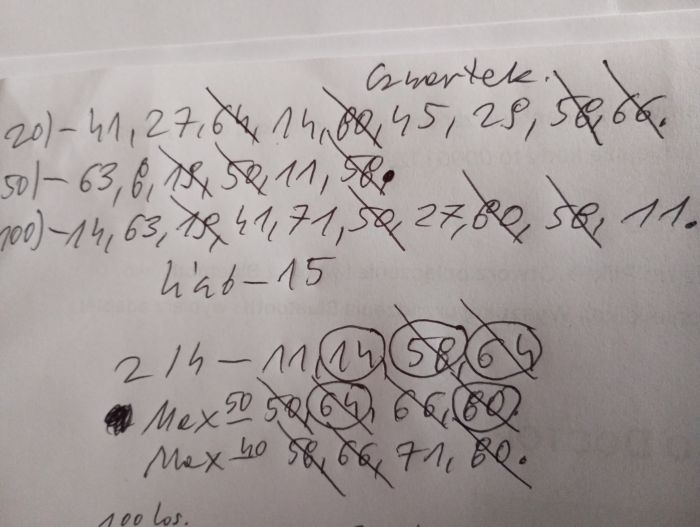 Czwartek.
20) - 41, 27, 64, 14, 80, 45, 29, 58, 66.
50) - 63, 8, 19, 50, 11, 58.
100) - 14, 63, 19, 41, 71, 50, 27, 80, 58, 11.
- 15
2/4 - 11, 14, 58, 64
Max 50 50, 64, 66, 80.
Max 40 58, 66, 71, 80.
100 los.